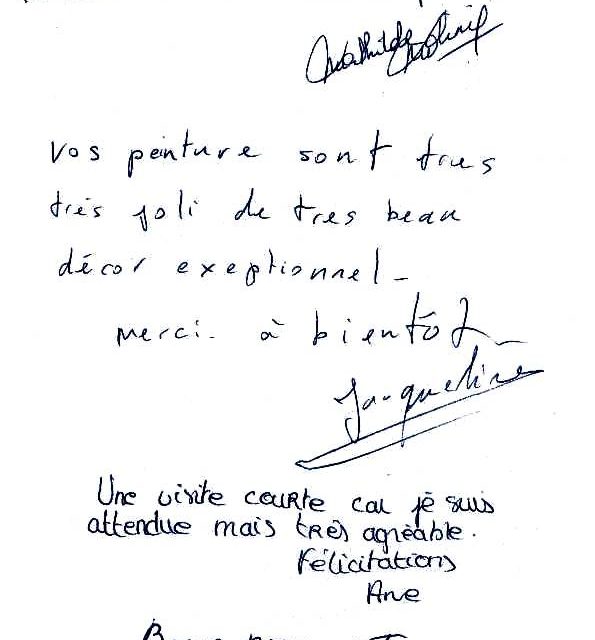 Mathilde
Vos peinture sont trues
très joli de tres beau
décor exeptionnel -
Merci. à bientôt
Jacqueline
Une visite courte car je suis
attendue mais très agréable.
Félicitations
Ane